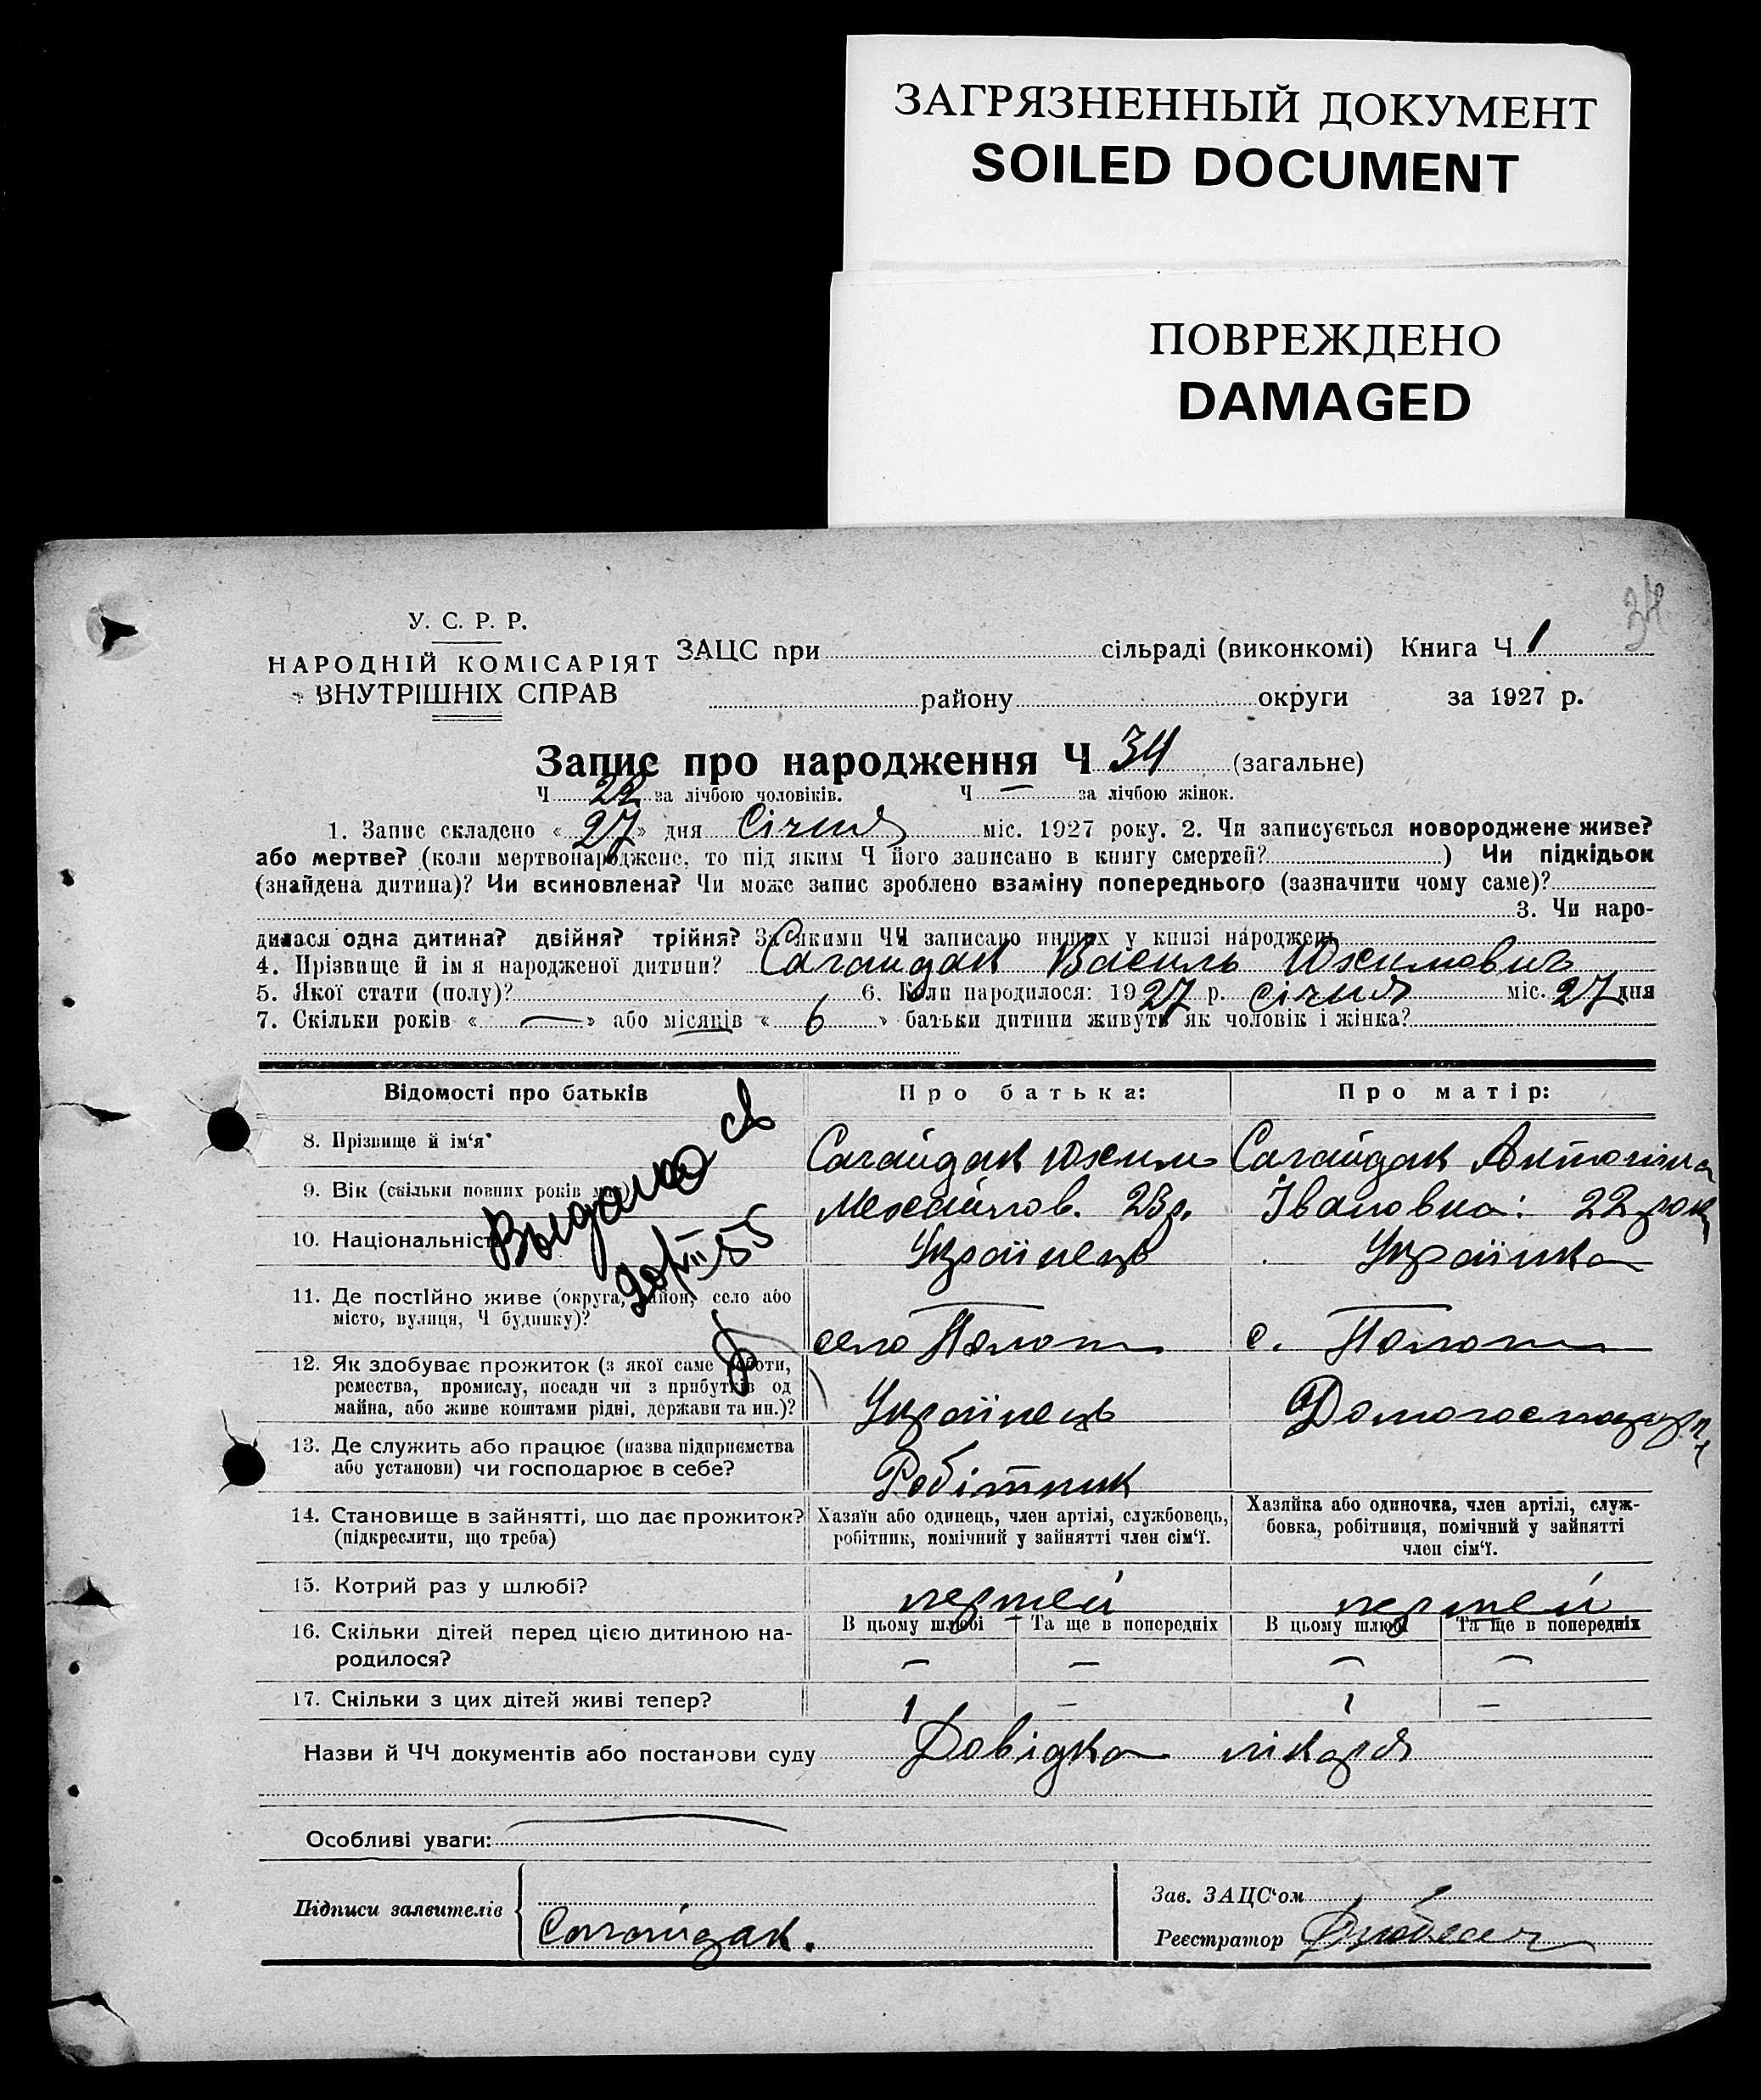 ЗАГРЯЗНЕННЫЙ ДОКУМЕНТ
SOILED DOCUMENT
ПОВРЕЖДЕНО
DAMAGED
34
У. С. Р. Р.
НАРОДНІЙ КОМІСАРІЯТ
ВНУТРІШНІХ СПРАВ
ЗАЦС при сільраді (виконкомі) Книга Ч 1
району округи за 1927 р.
Запис про народження Ч 34 (загальне)
Ч 22 за лічбою чоловіків. Ч — за лічбою жінок.
1. Запис складено « 27 » дня Січня міс. 1927 року. 2. Чи записується новороджене живе?
або мертве? (коли мертвонароджене, то під яким Ч його записано в книгу смертей? ) Чи підкідьок
(знайдена дитина)? Чи всиновлена? Чи може запис зроблено взаміну попереднього (зазначити чому саме)?
3. Чи наро-
дилася одна дитина? двійня? трійня? За якими ЧЧ записано инших у книзі народжень
4. Прізвище й імя народженої дитини? Сагайдак Василь Юхимович
5. Якої стати (полу)? 6. Коли народилося: 1927 р. січня міс. 27 дня
7. Скільки років « — » або місяців « 6 » батьки дитини живуть як чоловік і жінка?
Відомості про батьків Про батька: Про матір:
8. Прізвище й ім‘я Сагайдак Юхим Сагайдак Антоніна
9. Вік (скільки повних років має) Михайлов. 23р. Івановна: 22 рок
10. Національність Українець Українка
Выдано св
55
11. Де постійно живе (округа, район, село або
місто, вулиця, Ч будинку)? село Пологи с. Пологи
12. Як здобуває прожиток (з якої саме роботи,
ремества, промислу, посади чи з прибутків од
майна, або живе коштами рідні, держави та ин.)? Українець
13. Де служить або працює (назва підприємства
або установи) чи господарює в себе? Робітник
14. Становище в зайнятті, що дає прожиток?
(підкреслити, що треба)
Хазяїн або одинець, член артілі, службовець,
робітник, помічний у зайнятті член сім‘ї.
Хазяйка або одиночка, член артілі, служ-
бовка, робітниця, помічний у зайнятті
член сім‘ї.
15. Котрий раз у шлюбі? першей першей
16. Скільки дітей перед цією дитиною на-
родилося?
В цьому шлюбі Та ще в попередніх В цьому шлюбі Та ще в попередніх
— — — —
17. Скільки з цих дітей живі тепер? 1 — 1 —
Назви й ЧЧ документів або постанови суду Довідка лікаря
Особливі уваги:
Підписи заявителів Сагайдак.
Зав. ЗАЦС‘ом
Реєстратор